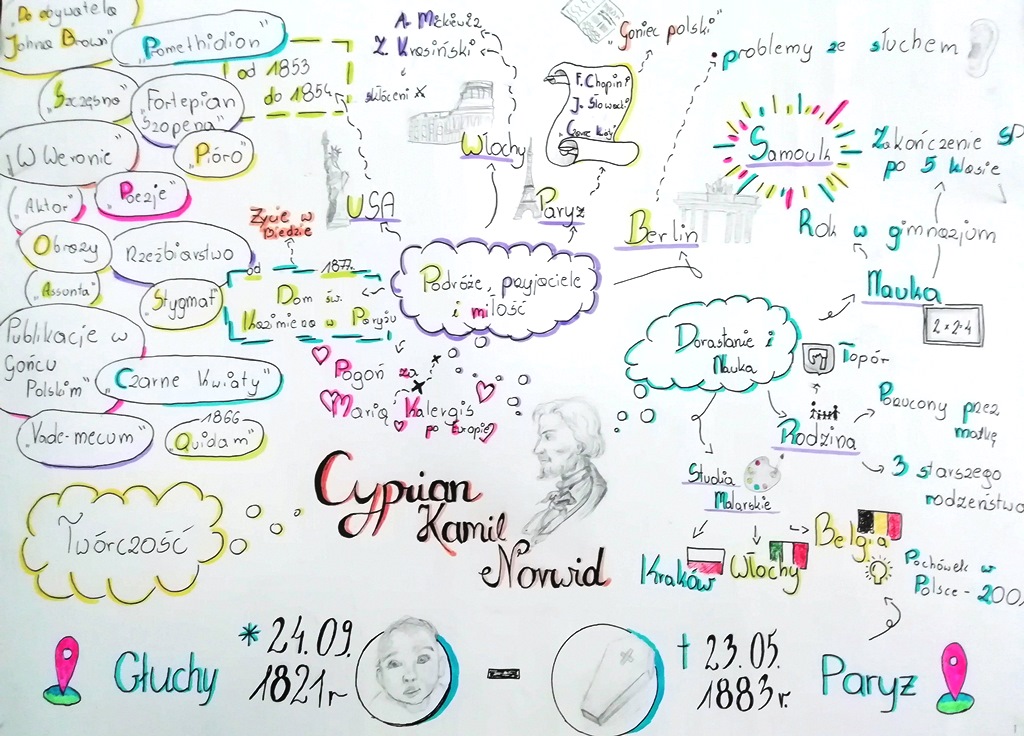 „Do obywatela
Johna Brown"
„Pomethidion"
od 1853
do 1854
„Szczęsno"
Fortepian
Szopena"
„W Weronie"
„Pióro"
„Aktor"
„Poezje"
Obrazy
Rzeźbiarstwo
„Assunta"
„Stygmat"
Publikacje w
Gońcu
Polskim"
„Czarne Kwiaty"
„Vade-mecum"
1866
„Quidam"
Twórczość
A. Mickiewicz
Z. Krasiński
i
skłóceni X
Włochy
USA
Życie w
Biedzie
od 1877r.
Dom św.
Kazimierza w Paryżu
„Goniec polski"
F. Chopin i
J. Słowacki
Paryż
Berlin
problemy ze słuchem
Podróże, przyjaciele
i miłość
Pogoń za
Marią Kalergis
po Europie
Samouk
Zakończenie SP
po 5 klasie
Rok w gimnazjum
Nauka
2 x 2=4
Dorastanie i
Nauka
Topór
Rodzina
Rzucony przez
matkę
3 starszego
rodzeństwa
Studia
Malarskie
Kraków
Włochy
Belgia
Pochówek w
Polsce - 200
Cyprian
Kamil
Norwid
Głuchy
* 24.09.
1821r
-
† 23.05.
1883r.
Paryż